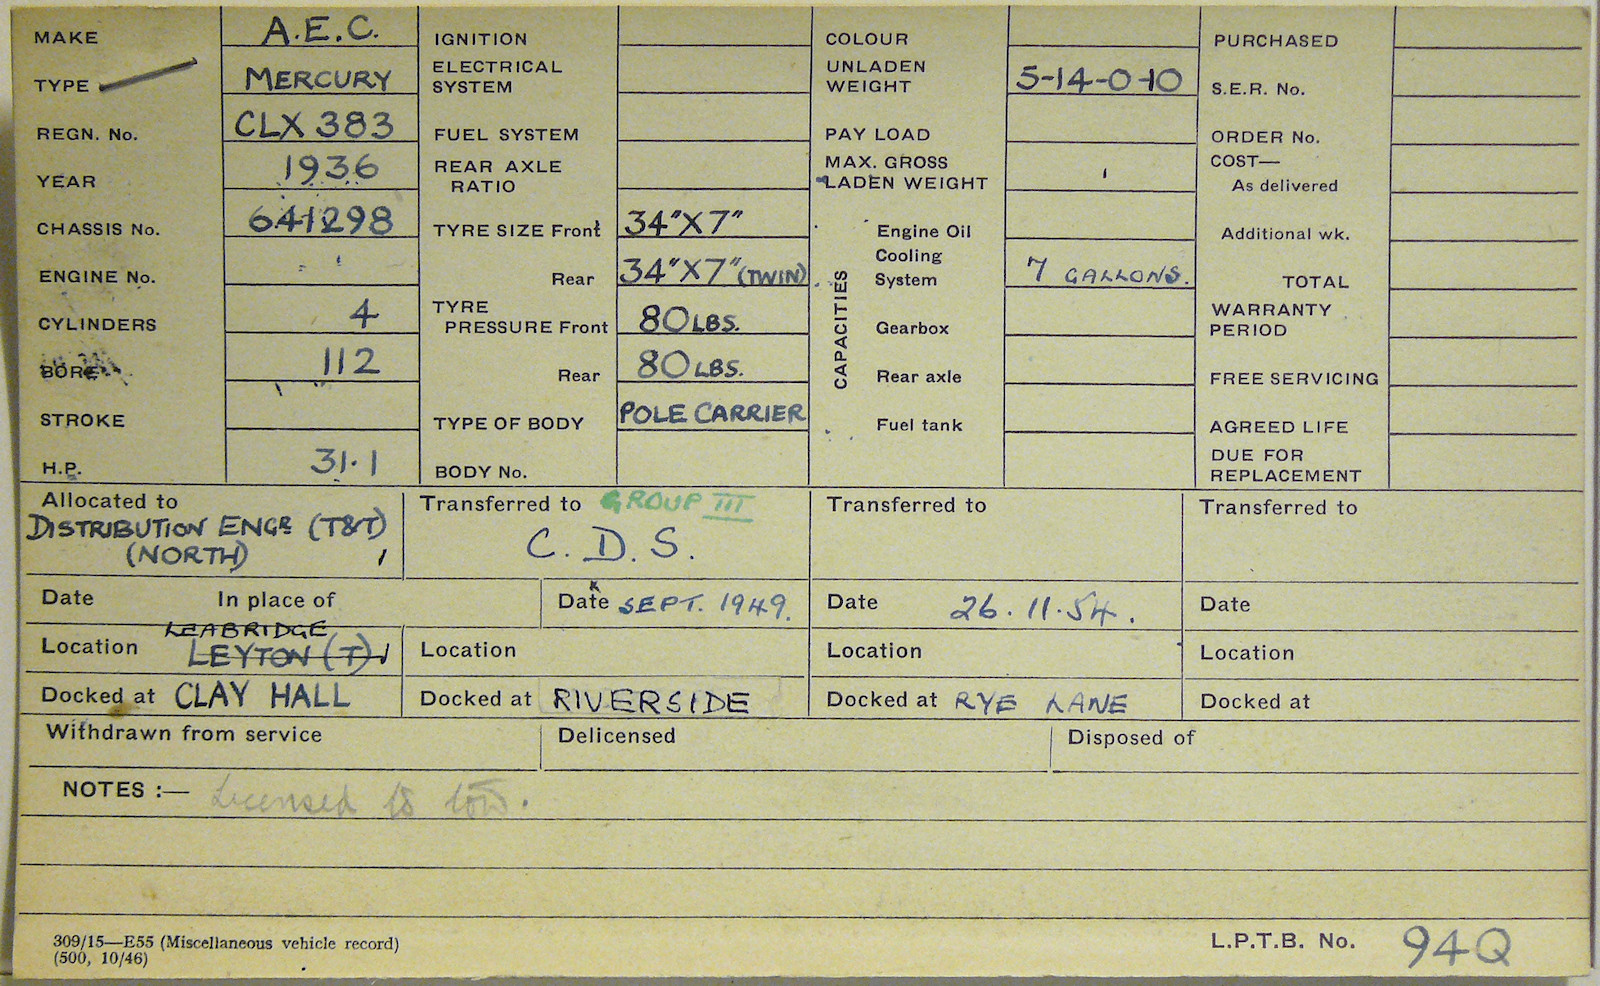 MAKE A.E.C. IGNITION COLOUR PURCHASED
TYPE MERCURY ELECTRICAL SYSTEM UNLADEN WEIGHT 5-14-0-10 S.E.R. No.
REGN. No. CLX 383 FUEL SYSTEM PAY LOAD ORDER No.
YEAR 1936 REAR AXLE RATIO MAX. GROSS LADEN WEIGHT COST— As delivered
CHASSIS No. 641298 TYRE SIZE Front 34"X7" CAPACITIES Engine Oil Additional wk.
ENGINE No. Rear 34"X7" (TWIN) Cooling System 7 GALLONS. TOTAL
CYLINDERS 4 TYRE PRESSURE Front 80 LBS. Gearbox WARRANTY PERIOD
BORE 112 Rear 80 LBS. Rear axle FREE SERVICING
STROKE TYPE OF BODY POLE CARRIER Fuel tank AGREED LIFE
H.P. 31.1 BODY No. DUE FOR REPLACEMENT
Allocated to Transferred to GROUP III Transferred to Transferred to
DISTRIBUTION ENGR (T&T) C. D. S.
(NORTH)
Date In place of Date SEPT. 1949. Date 26.11.54. Date
LEABRIDGE
Location LEYTON (T) Location Location Location
Docked at CLAY HALL Docked at RIVERSIDE Docked at RYE LANE Docked at
Withdrawn from service Delicensed Disposed of
NOTES :— Licensed to tow.
309/15—E55 (Miscellaneous vehicle record)
(500, 10/46)
L.P.T.B. No. 94Q